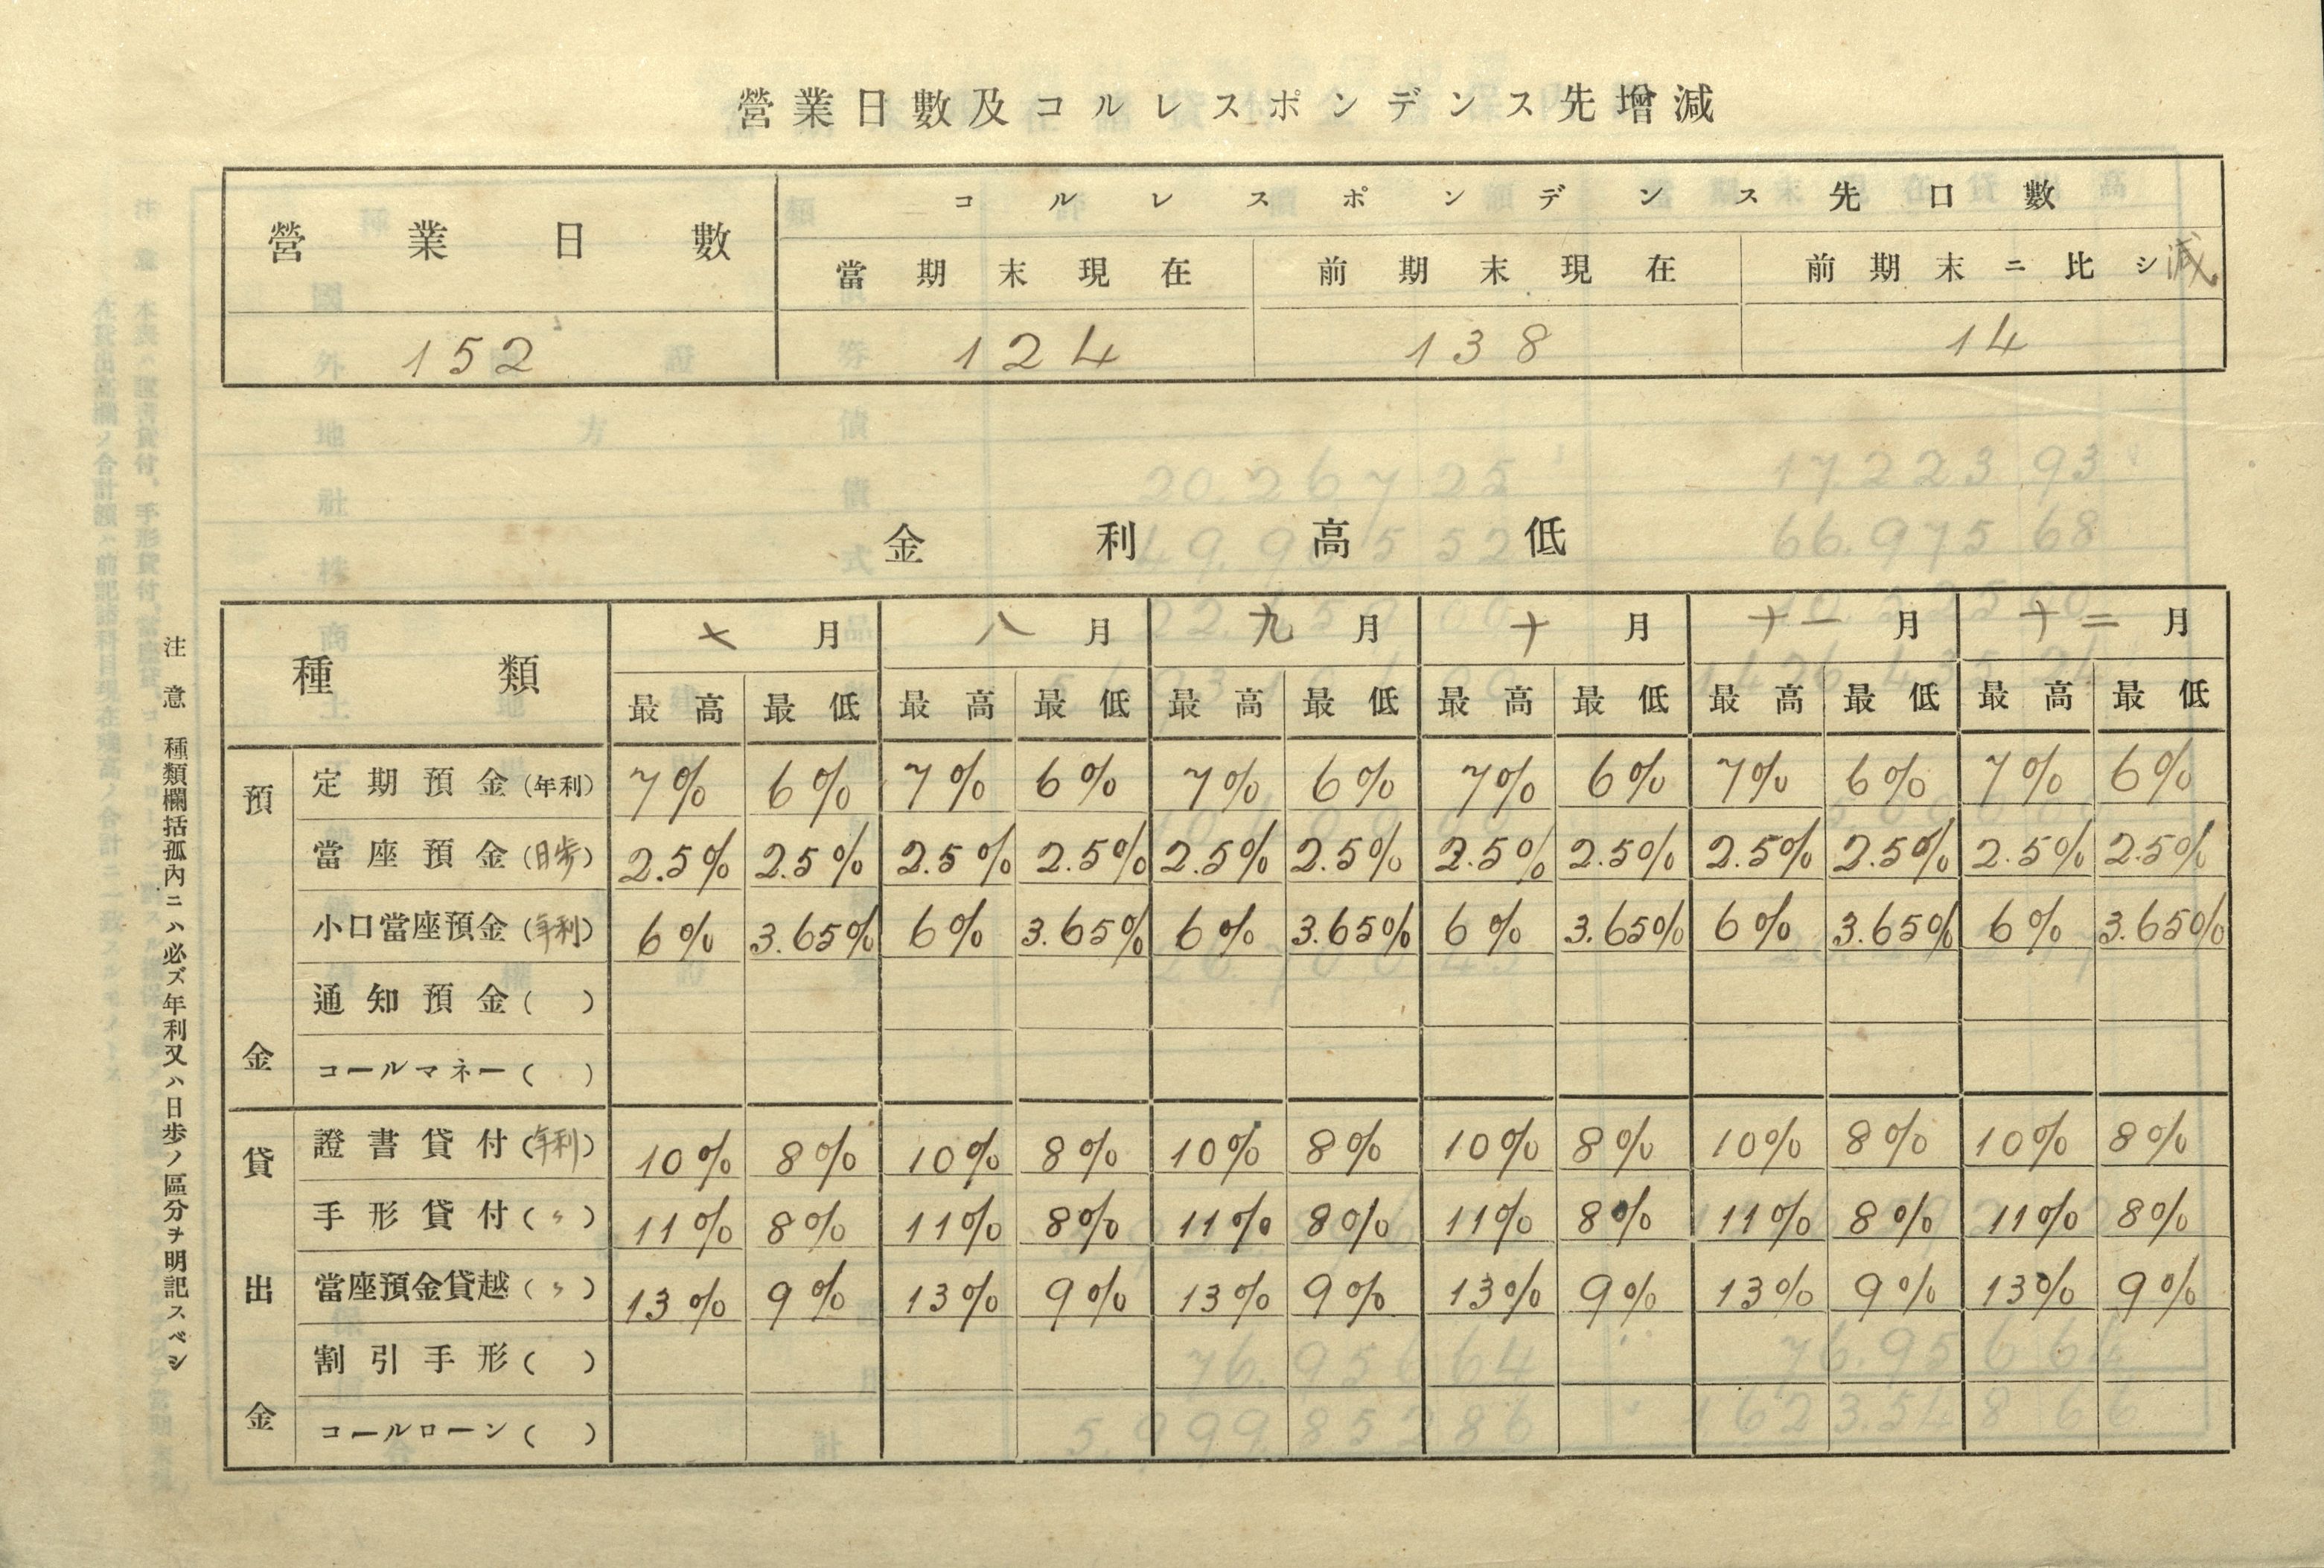 營業日數及コルレスポンデンス先增減
營業日數 コルレスポンデンス先口數
當期末現在 前期末現在 前期末ニ比シ減
152 124 138 14
金利高低
種類 七月 八月 九月 十月 十一月 十二月
最高 最低 最高 最低 最高 最低 最高 最低 最高 最低 最高 最低
預金
定期預金(年利) 7% 6% 7% 6% 7% 6% 7% 6% 7% 6% 7% 6%
當座預金(日歩) 2.5% 2.5% 2.5% 2.5% 2.5% 2.5% 2.5% 2.5% 2.5% 2.5% 2.5% 2.5%
小口當座預金(年利) 6% 3.65% 6% 3.65% 6% 3.65% 6% 3.65% 6% 3.65% 6% 3.65%
通知預金( )
コールマネー( )
貸出金
證書貸付(年利) 10% 8% 10% 8% 10% 8% 10% 8% 10% 8% 10% 8%
手形貸付(〃) 11% 8% 11% 8% 11% 8% 11% 8% 11% 8% 11% 8%
當座預金貸越(〃) 13% 9% 13% 9% 13% 9% 13% 9% 13% 9% 13% 9%
割引手形( )
コールローン( )
注意 種類欄括孤內ニハ必ズ年利又ハ日歩ノ區分ヲ明記スベシ